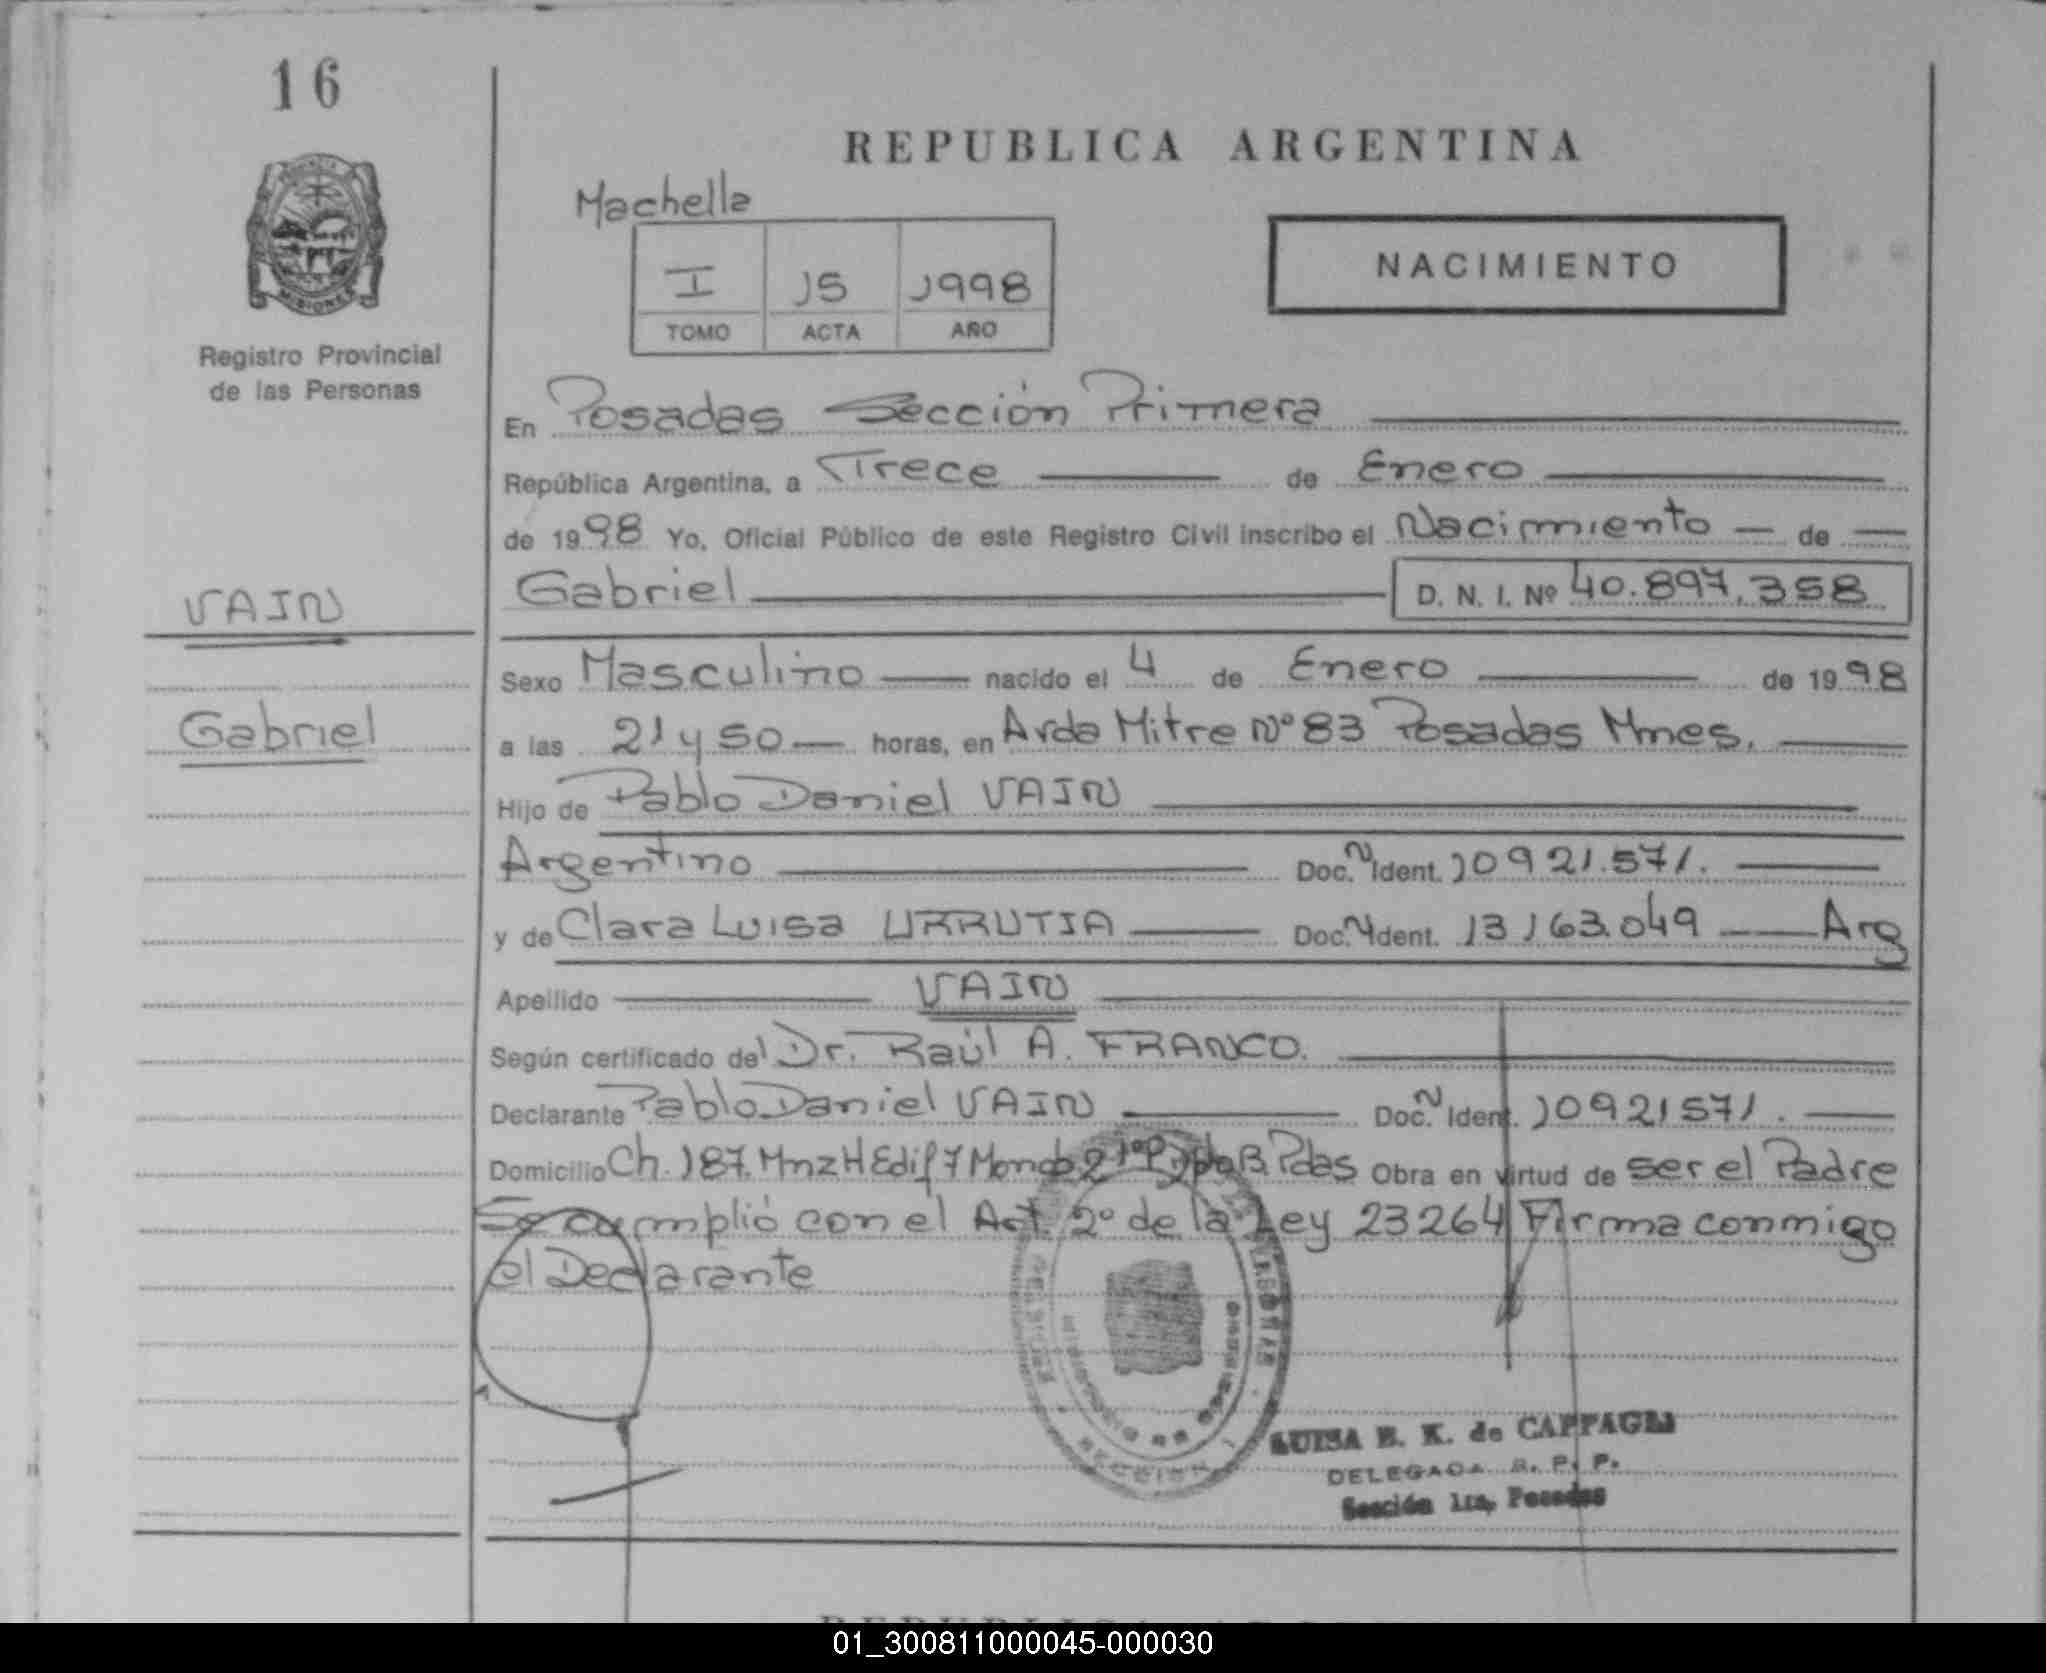 16
REPUBLICA ARGENTINA
Machella
NACIMIENTO
I 15 1998
TOMO ACTA AÑO
MISIONES
Registro Provincial
de las Personas
En Posadas Sección Primera
República Argentina, a Trece de Enero
de 1998 Yo, Oficial Público de este Registro Civil inscribo el Nacimiento de
VAIN
Gabriel D. N. I. Nº 40.897.358
Sexo Masculino nacido el 4 de Enero de 1998
Gabriel
a las 21 y 50 horas, en Avda Mitre Nº 83 Posadas Mnes.
Hijo de Pablo Daniel VAIN
Argentino Doc. N Ident. 10921.571.
y de Clara Luisa URRUTIA Doc. N Ident. 13163.049 Arg
Apellido VAIN
Según certificado del Dr. Raúl A. FRANCO.
Declarante Pablo Daniel VAIN Doc. N Ident. 10921571.
Domicilio Ch. 187. Mnz H Edif 7 Monob 2 1º P. Dpto B. Pdas Obra en virtud de ser el Padre
Se cumplió con el Art. 2º de la Ley 23264 Firma conmigo
el Declarante
SECCION 1
LUISA E. K. de
DELEGADA R. P. P.
Sección 1ra, Posadas
01_300811000045-000030